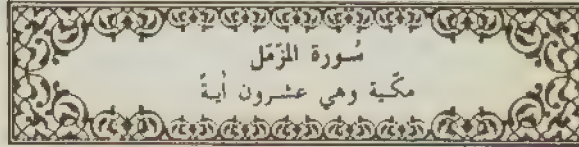 سورة المزّمّل
مكّية وهي عشرون أيةً